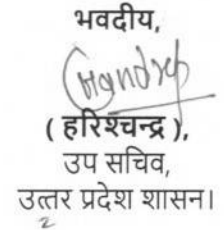 भवदीय,
( हरिश्चन्द्र ),
उप सचिव,
उत्तर प्रदेश शासन।
2